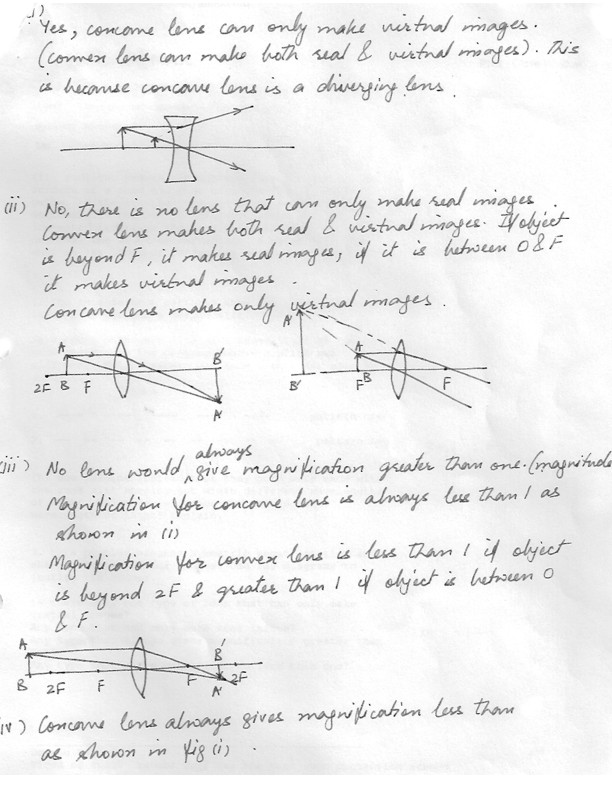 i)
Yes, concave lens can only make virtual images.
(convex lens can make both real & virtual images). This
is because concave lens is a diverging lens.
(ii) No, there is no lens that can only make real images.
Convex lens makes both real & virtual images. If object
is beyond F, it makes real images, if it is between O & F
it makes virtual images.
Concave lens makes only virtual images.
A'
A B' A
2F B F B' F B F
A'
always
(iii) No lens would ^ give magnification greater than one. (magnitude
Magnification for concave lens is always less than 1 as
shown in (i)
Magnification for convex lens is less than 1 if object
is beyond 2F & greater than 1 if object is between O
& F.
A B'
B 2F F F A' 2F
iv) Concave lens always gives magnification less than
as shown in fig (i).